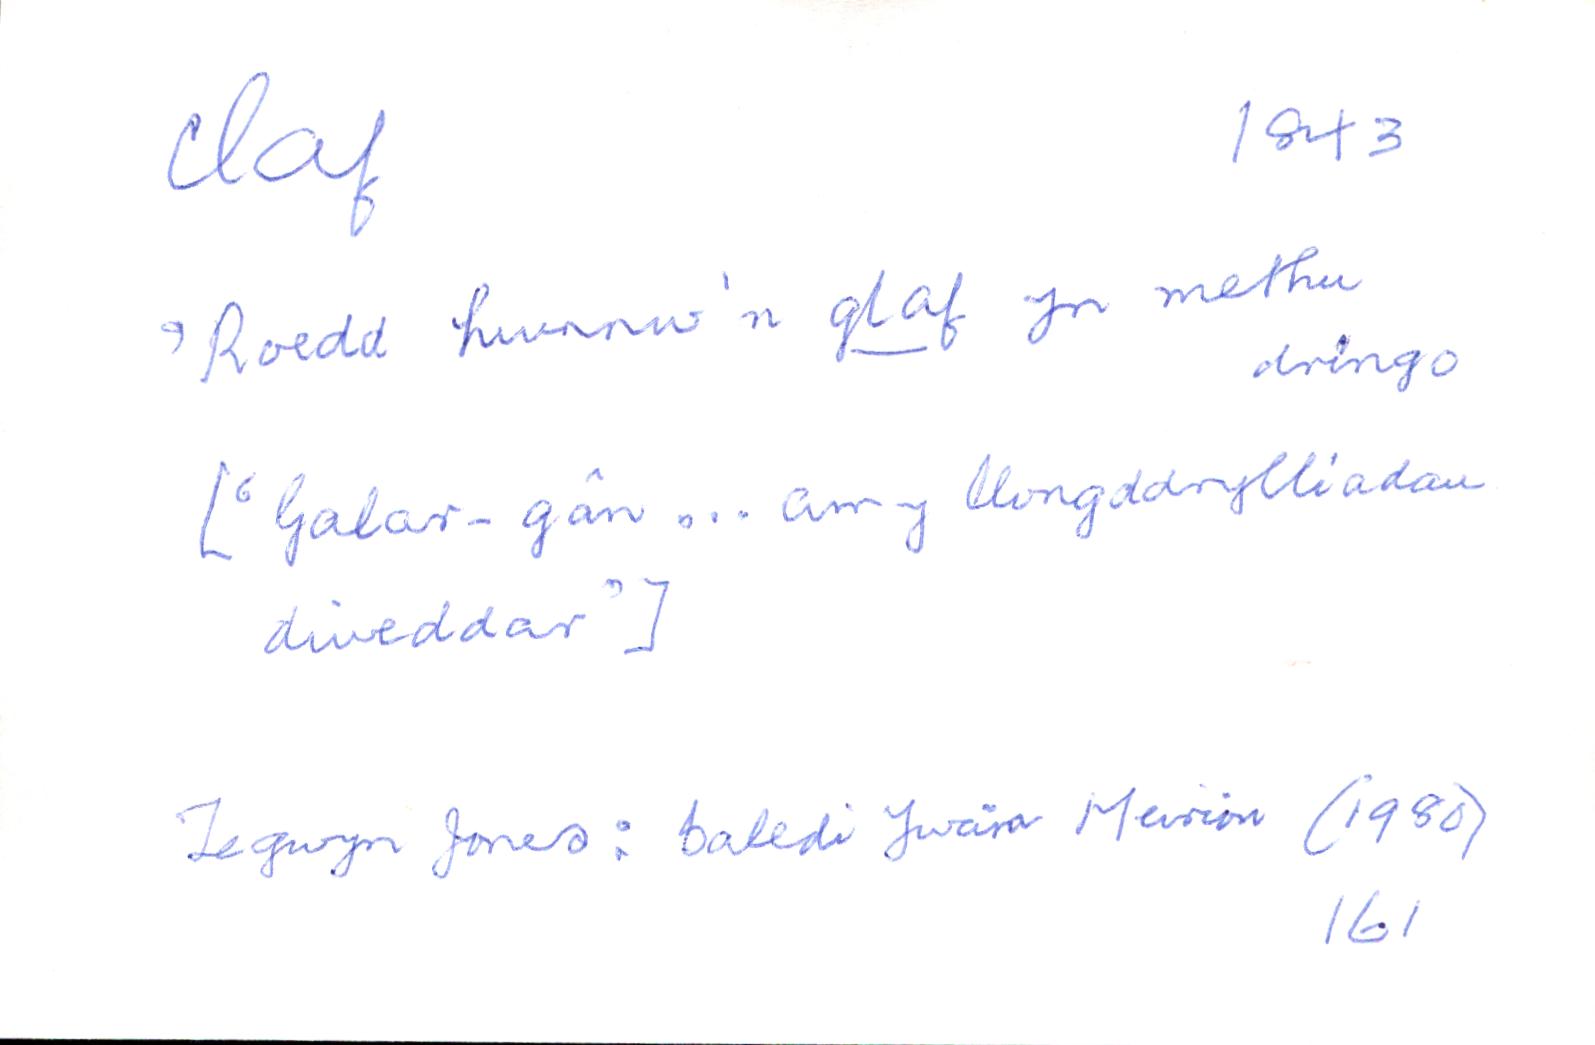 claf 1843
'Roedd hwnnw'n glaf yn methu
dringo
[‘Galar-gân ... am y llongddrylliadau
diweddar’]
Tegwyn Jones: Baledi Ywain Meirion (1980)
161